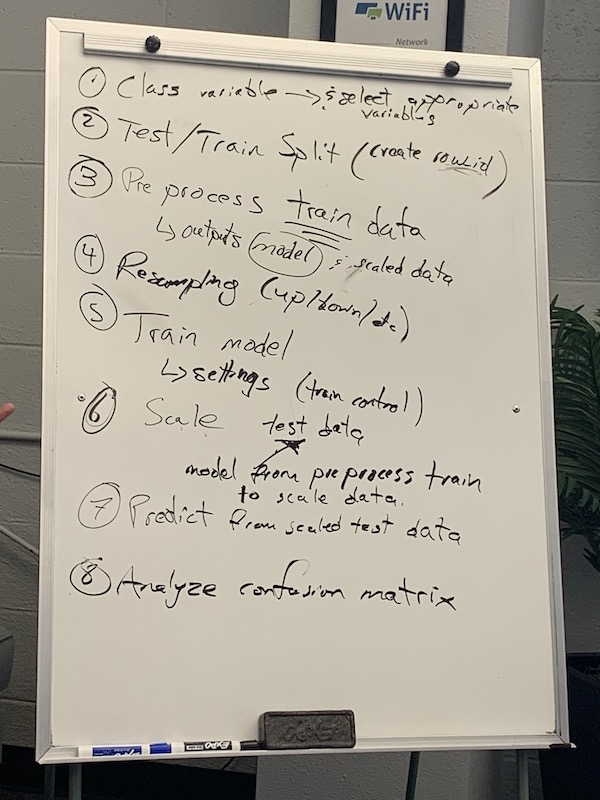 WiFi
Network
① Class variable → & select appropriate
variables
② Test/Train Split (create rowid)
③ Pre process train data
↳ outputs model & scaled data
④ Resampling (up/down/etc)
⑤ Train model
↳ settings (train control)
⑥ Scale test data
model from preprocess train
to scale data.
⑦ Predict from scaled test data
⑧ Analyze confusion matrix
EXPO